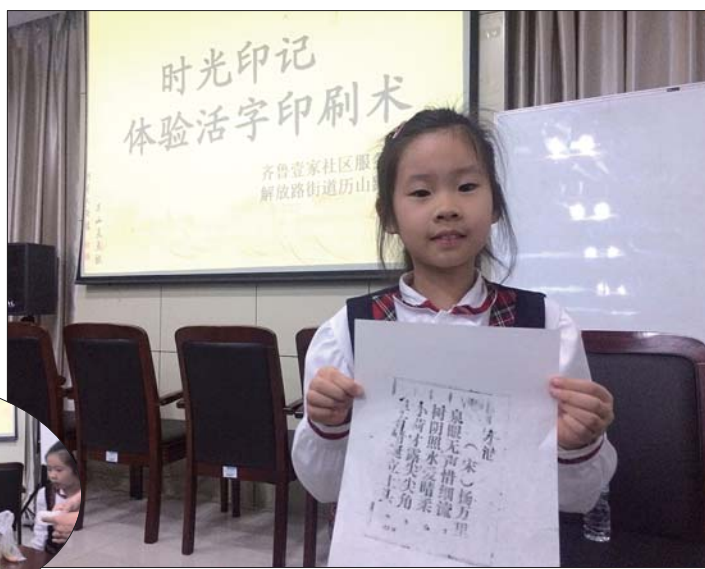 时光印记
体验活字印刷术
齐鲁壹家社区服
解放路街道历山
（宋）万里
泉眼无声惜细流
树阴照水
小荷才露尖尖角
立上